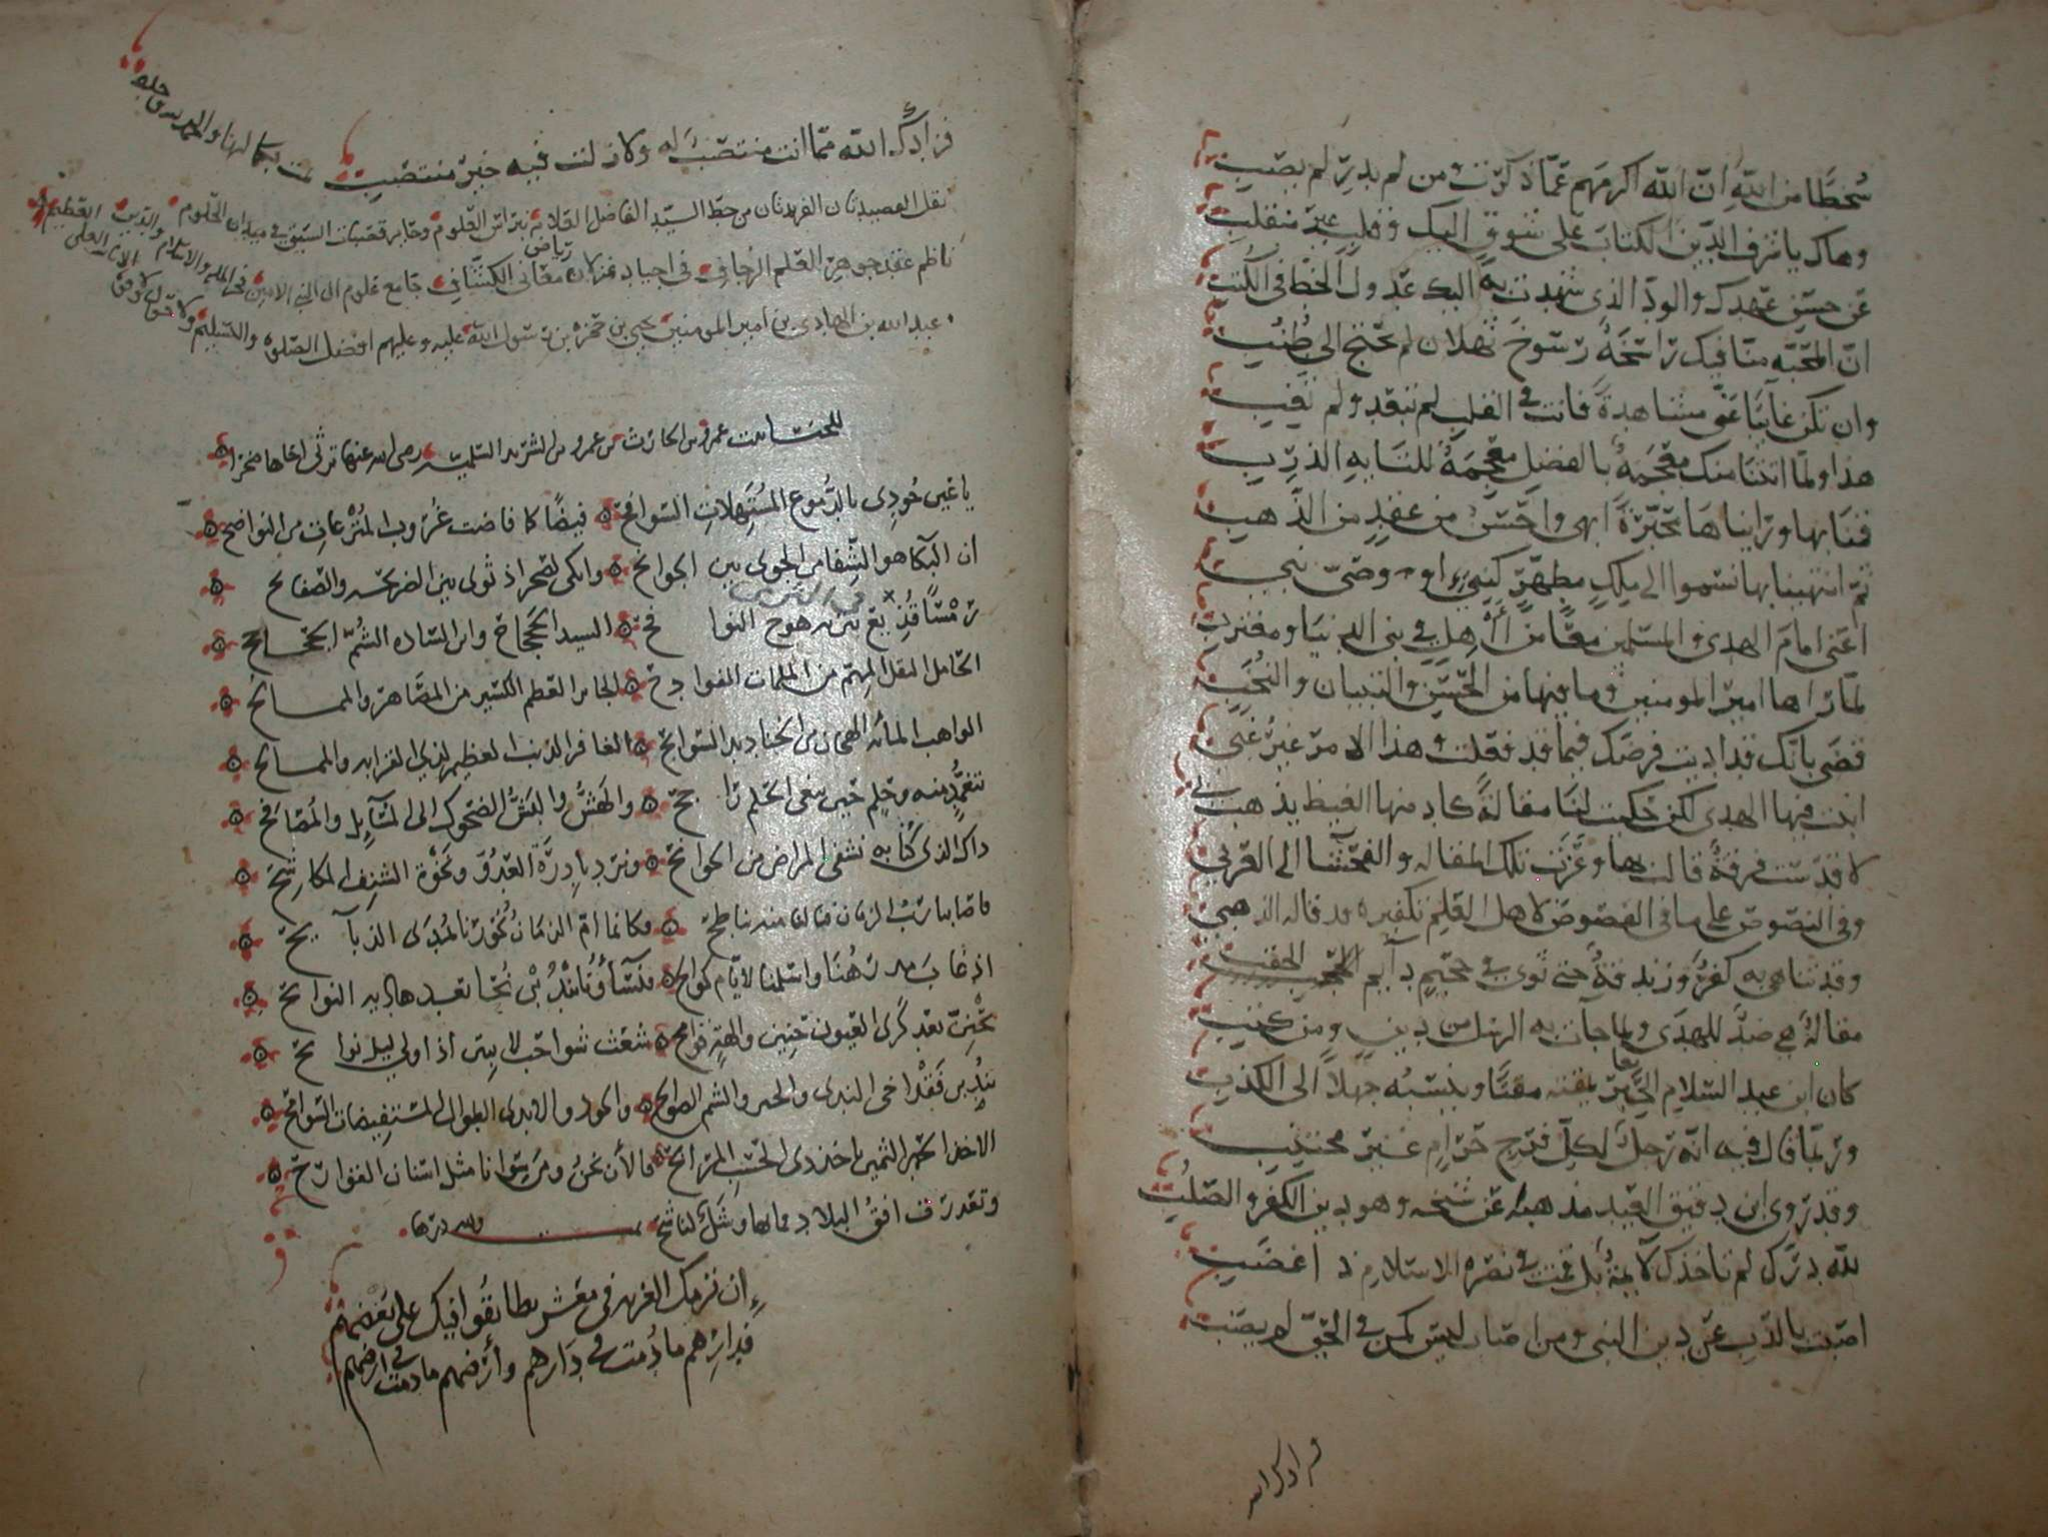 سُخطًا من اللهِ انّ الله اكرمهم عمّا ذكرت ومن لم يدرِ لم يصب
وهاك يا شرف الدين الكتاب على شوقٍ اليك وقلبٍ غير منقلب
عن حسن عهدك والودّ الذي شهدت به اليك عدول الخط في الكتب
انّ المحبّه منّا فيك راسخةٌ رسوخ ثهلان لم تحتج الى طنب
وان تكن غايبًا عنّي مشاهدةً فانت في القلب لم تبعد ولم تغب
هذا ولمّا اتتنا منك مفحمةٌ بالفضل معجمةٌ للنابه الذرب
فُتنا بها وراينا محبّرةً ابهى واحسن من عقدٍ من الذهب
ثمّ انتهينا بها تسموا الى ملكٍ مطهّرٍ كنبيٍّ او وصيّ نبي
اعني امام الهدى والمسلمين معًا من في بني الدنيا ومغترب
لمّا راها امير المومنين وما فيها من الحسن والتبيان والنخب
قضى بانك قد اديت فرضك فيما قد فعلت وهذا الامر غير غبي
ابنت فيها الهدى لكن حكيت لنا مقالةً كاد منها الغيظ يذهب بي
لا قدّست فرقةٌ قالت بها وعزت تلك المقاله والفحشا الى العربي
وفي النصوص على ما في الفصوص لاهل العلم تكفيره قد قاله الذهبي
وقد تناهى به كفرٌ وزندقةٌ حتى ثوى في جحيمٍ دايم الحقب
مقالةٌ هي ضدٌ للهدى ولما جات به الرسل من دينٍ ومن كتب
كان ابن عبد السلام الحبر يمقته مقتًا وينسبُه جهلاً الى الكذب
وربّما قال فيه انّه رجلٌ لكلّ فرجٍ حرامٍ غير مجتنب
وقد روى ابن دقيق العيد مذهبه عن شيخه وهو دين الكفر والصلُب
لله درّك لم تاخذك لايمةٌ بل قمت في نصره الاسلام ذا غضب
اصبت بالذبّ عن دين النبي ومن اصاب ليس كمن في الحق لم يصب
فزادك الله
فزادك الله ممّا انت منتصبٌ له ولا زلت فيه خير منتصب تمت بكمالها والحمد لله حق حمده
نقل القصيدتان الفريدتان من خط السيد الفاضل العلامة نبراس العلوم وحايز قصبات السبق في ميدان الحلوم والدين العظيم
ناظم عقد جوهر العلم الزجافي في اجياد رياض معاني الكشاف جامع علوم ال النبي الامين فخر المله والاسلام
عبد الله بن الهادي بن امير المومنين يحيى بن حمزه بن رسول الله عليه وعليهم افضل الصلوه والتسليم ولا حول ولا قوة الا بالله العلي
للخنسا بنت عمرو بن الحارث بن عمرو بن الشريد السلميه رضي الله عنها ترثي اخاها صخرا
يا عين جودي بالدّموع المستهلات السوافح فيضًا كما فاضت غروب المترعات من النواضح
ان البكا هو الشفا من الجوى بين الجوانح وابكي لصخر اذ ثوى بين الضريحه والصفايح
رمسًا قُذيفع بتربه هوج النوافح السيد الجحجاح وابن الساده الشمّ الجحاجح
الحامل الثقل المهم من الملمات الفوادح الجابر العظم الكسير من المهاصر والممانح
الواهب المائه الهجان من الخناذيذ السوابح الغافر الذنب العظيم لذي القرابه والممالح
بتعمّدٍ منه وحلمٍ حين يبغي الحلم راجح والهشّ والبشّ الضحوك الى المسآيل والمصافح
ذاك الذي كنا به نشفي المراض من الجوانح ونرد بادرة العدو ونخوة الشنف المكاشح
فاصابنا ريب الزمان فنالنا منه بناطح فكانما امّ الزمان نحورنا لمُدى الذبآيح
اذ غاب مدرهنا واسلمنا لايام كوالح فنسآؤنا يندبن نُحّا بعد هاديه النوايح
يحنن بعد كرى العيون حنين والهة قوامح شعثًا شواحب لا ينين اذا ونى ليل نوايح
يندبن فقد اخي الندى والخير والشيم الصوالح والجود والايدي الطوال المستفيضات السوامح
فالان نحن ومن سوانا مثل اسنان القوارح
ان ترمك الغربه في معشر تطابقوا فيك على بغضهم
فدارهم ما دمت في دارهم وارضهم ما دمت في ارضهم